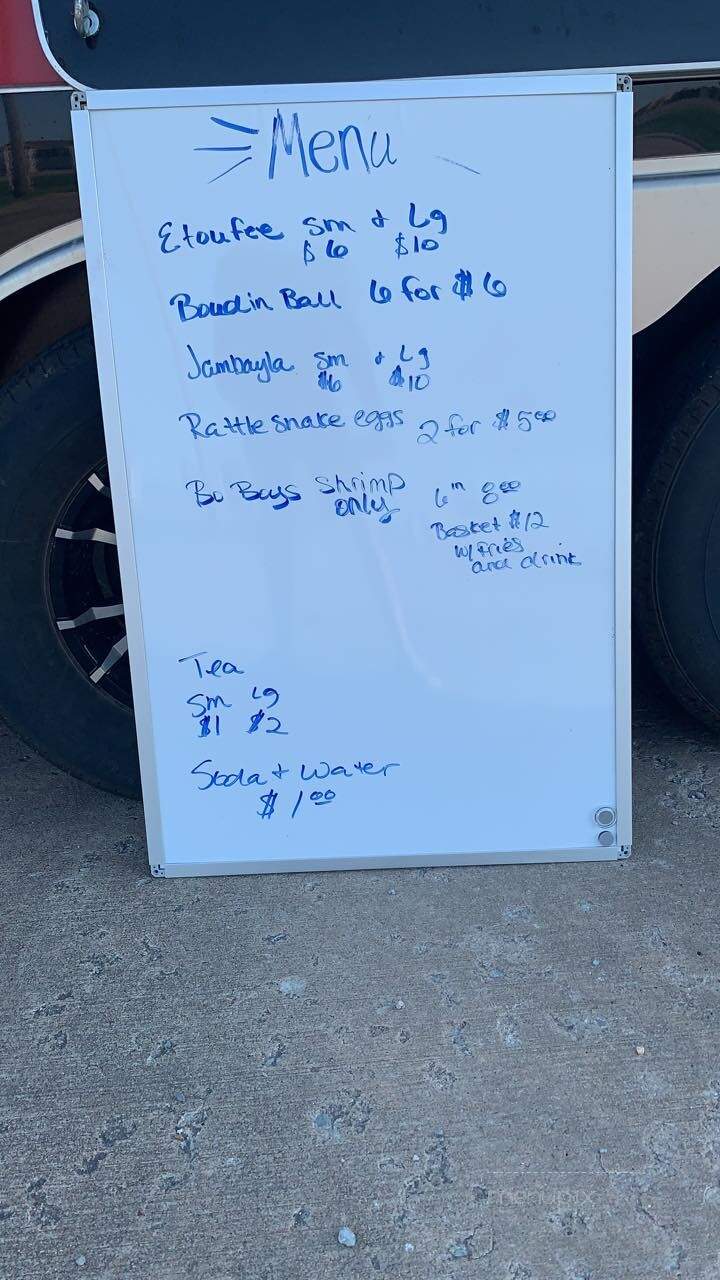 Menu
Etoufee sm & Lg
$6 $10
Boudin Ball 6 for $6
Jambayla sm & Lg
$6 $10
Rattlesnake eggs 2 for $5.00
Bo Boys Shrimp only 6in 8.00
Basket $12
w/fries
and drink
Tea
Sm Lg
$1 $2
Soda & Water
$1.00
menupix